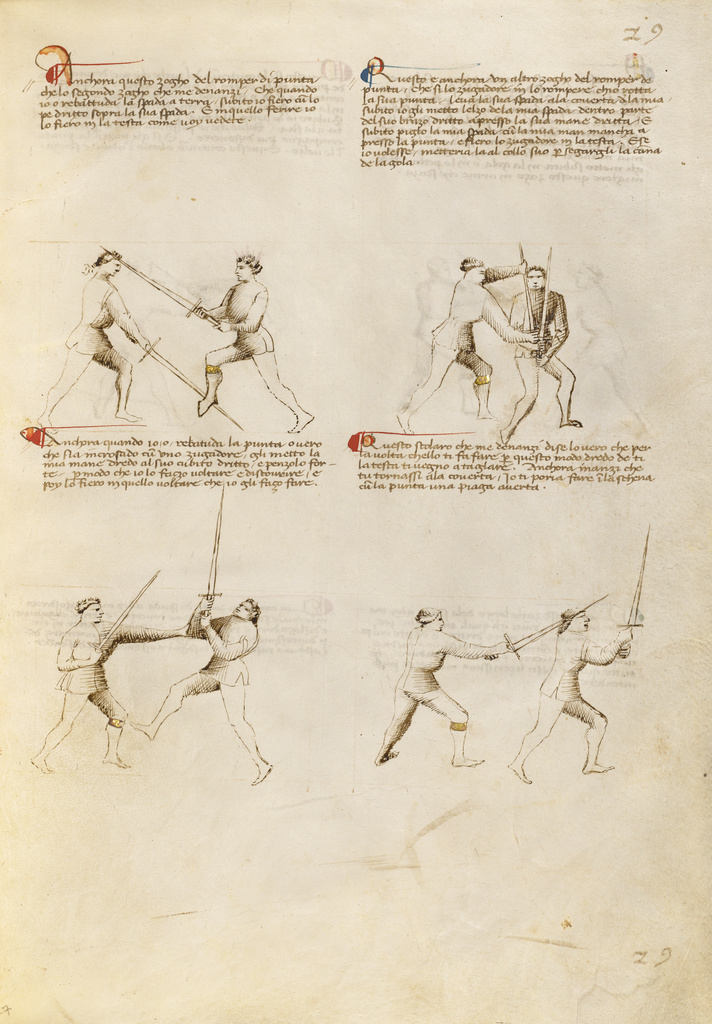 29
Anchora questo zogho del romper di punta
che lo segondo zogho che me denanzi. Che quando
io o rebattuda la spada a terra, subito io fiero cum lo
pe dritto sopra la sua spada. E in quello ferire io
lo fiero in la testa come voy vedete.
Questo e anchora un altro zogho del romper de
punta, che si lo zugadore in lo rompere ch'io o rotta
la sua punta, leva la sua spada ala coverta dla mia
subito io gli metto l'elzo dela mia spada dentro parte
del suo brazo dritto apresso la sua mane dritta, E
subito piglo la mia spada cum la mia man mancha a
presso la punta, e fiero lo zugadore in la testa. E se
io volesse, metteria la al collo suo per segargli la cana
de la gola.
Anchora quando io o, rebatuda la punta, overo
che sia incrosado cum uno zugadore, gli metto la
mia mane dredo al suo cubito dritto, e penzolo for-
te, per modo che io lo fazo voltare e discovrire, e
poy lo fiero in quello voltare che io gli fazo fare.
Questo scolaro che me denanzi dise lo vero che per
la volta ch'ello ti fa fare per questo modo dredo de ti
la testa ti vegno a taglare. Anchora inanzi che
tu tornassi ala coverta, Io ti poria fare in la schena
cum la punta una piaga averta.
29